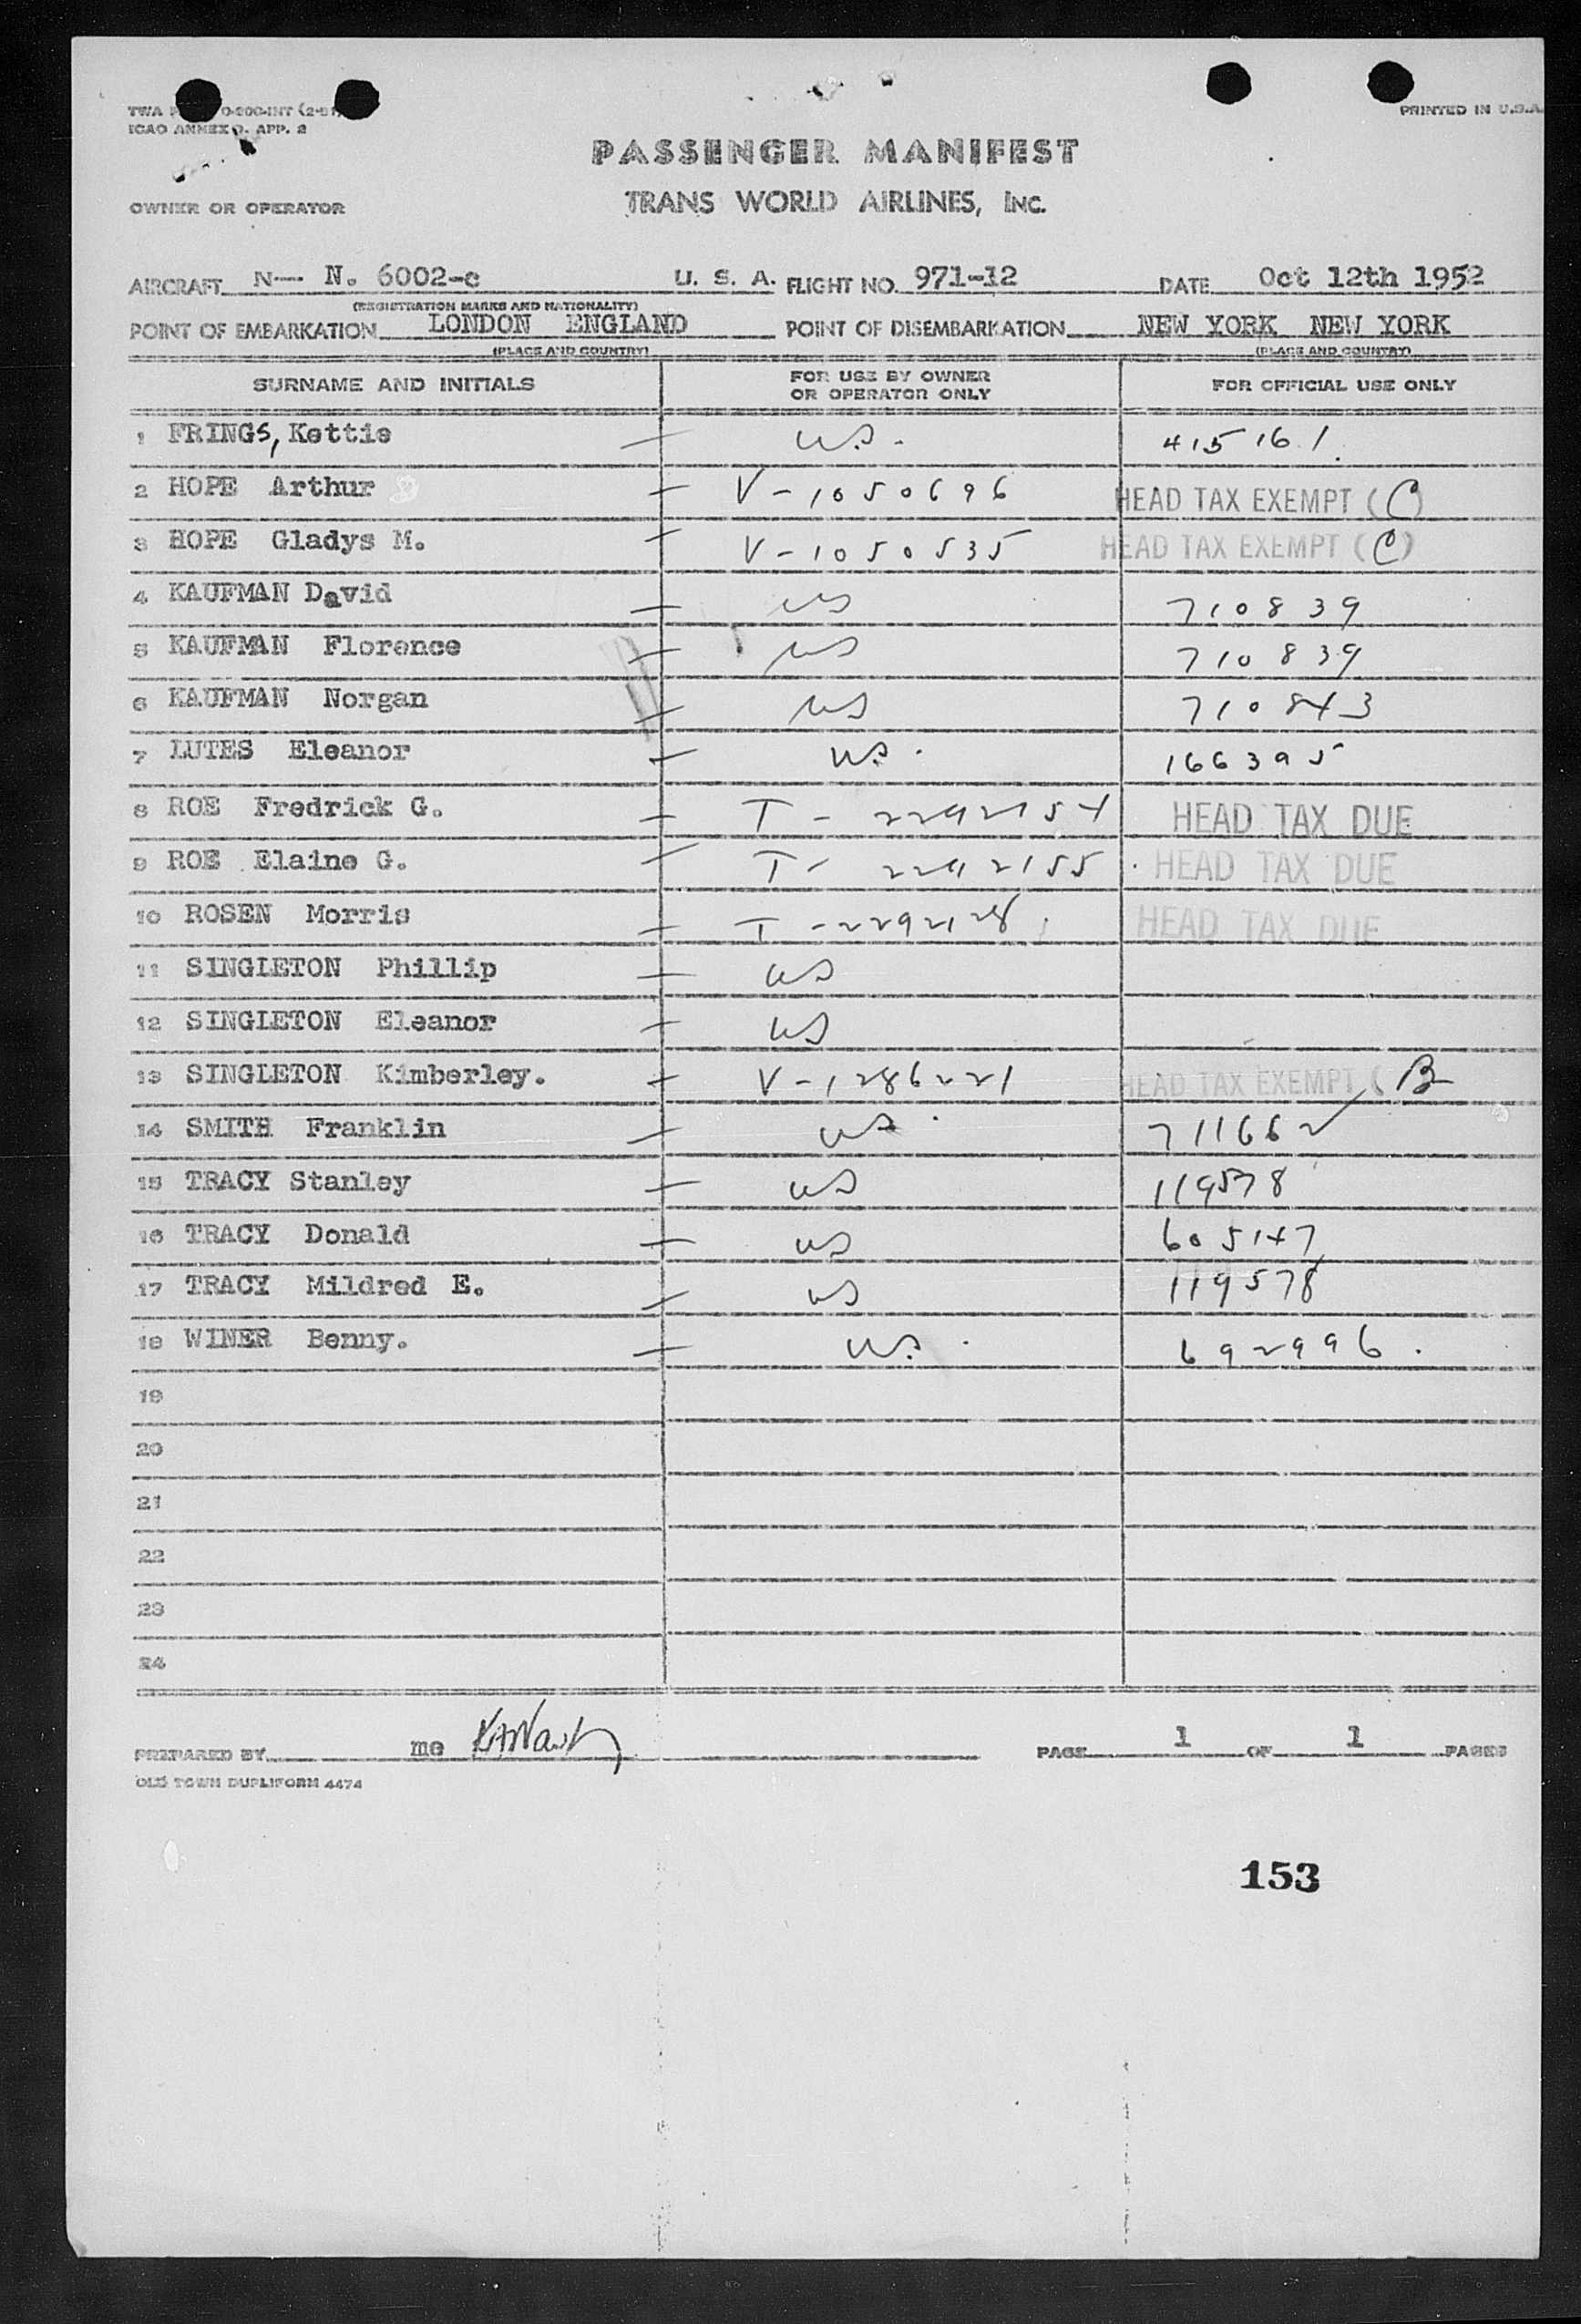 TWA 0-200-INT (2-51)
ICAO ANNEX 9. APP. 2
PRINTED IN U.S.A.
PASSENGER MANIFEST
OWNER OR OPERATOR
TRANS WORLD AIRLINES, INC.
AIRCRAFT N— N. 6002-c U. S. A. FLIGHT NO. 971-12 DATE Oct 12th 1952
(REGISTRATION MARKS AND NATIONALITY)
POINT OF EMBARKATION LONDON ENGLAND POINT OF DISEMBARKATION NEW YORK NEW YORK
(PLACE AND COUNTRY) (PLACE AND COUNTRY)
SURNAME AND INITIALS FOR USE BY OWNER OR OPERATOR ONLY FOR OFFICIAL USE ONLY
1 FRINGS, Kettie — U.S. 415161.
2 HOPE Arthur — V-1050696 HEAD TAX EXEMPT (C)
3 HOPE Gladys M. — V-1050535 HEAD TAX EXEMPT (C)
4 KAUFMAN David — US 710839
5 KAUFMAN Florence — US 710839
6 KAUFMAN Norgan — US 710843
7 LUTES Eleanor — U.S. 166395
8 ROE Fredrick G. — T-2292154 HEAD TAX DUE
9 ROE Elaine G. — T-2292155 HEAD TAX DUE
10 ROSEN Morris — T-2292128 HEAD TAX DUE
11 SINGLETON Phillip — US
12 SINGLETON Eleanor — US
13 SINGLETON Kimberley. — V-1286221 HEAD TAX EXEMPT (B
14 SMITH Franklin — US. 711662
15 TRACY Stanley — US 119578
16 TRACY Donald — US 605147
17 TRACY Mildred E. — US 119578
18 WINER Benny. — U.S. 692996.
19
20
21
22
23
24
PREPARED BY mo PAGE 1 OF 1 PAGES
OLD TOWN DUPLIFORM 4474
153